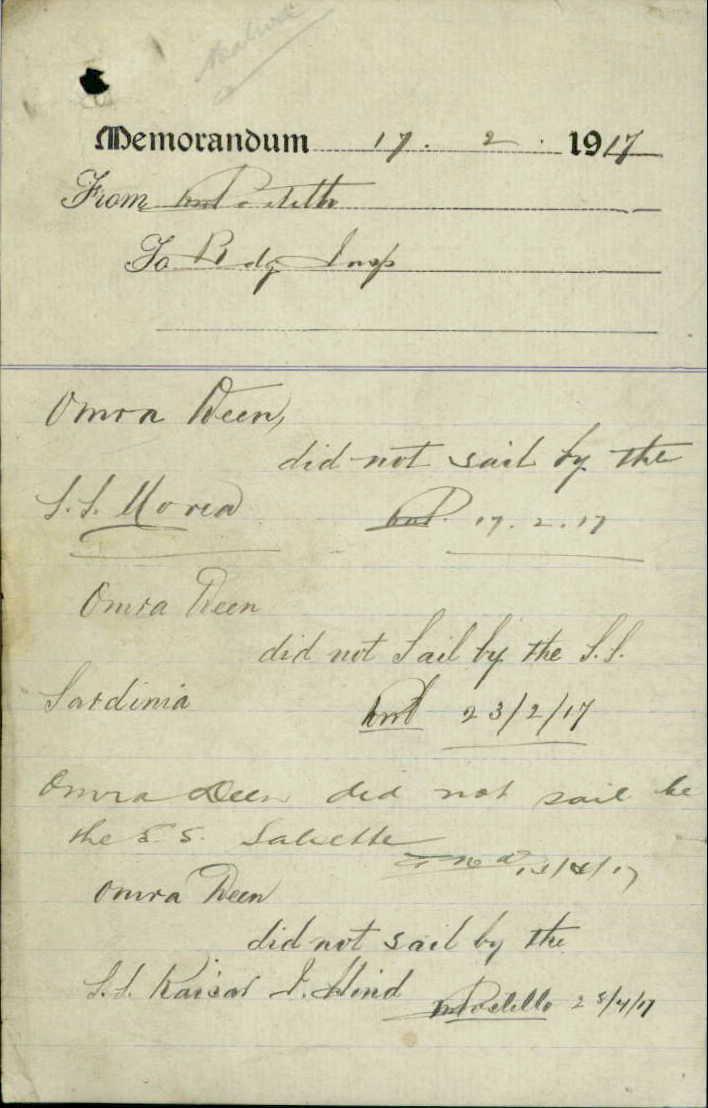 Memorandum 17. 2. 1917
From
To Bdg Insp
Omra Deen,
did not sail by the
S.S. Morea 17.2.17
Omra Deen
did not Sail by the S.S.
Sardinia 23/2/17
Omra Deen did not sail be
the S.S. Salsette
Omra Deen
did not sail by the
S.S. Kaisar I. Hind